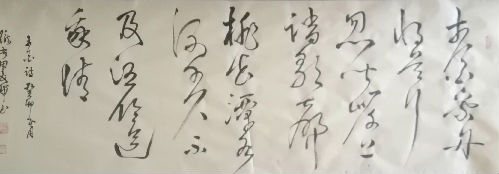 李白乘舟
将欲行
忽闻岸上
踏歌声
桃花潭水
深千尺不
及汪伦送
我情
李白诗